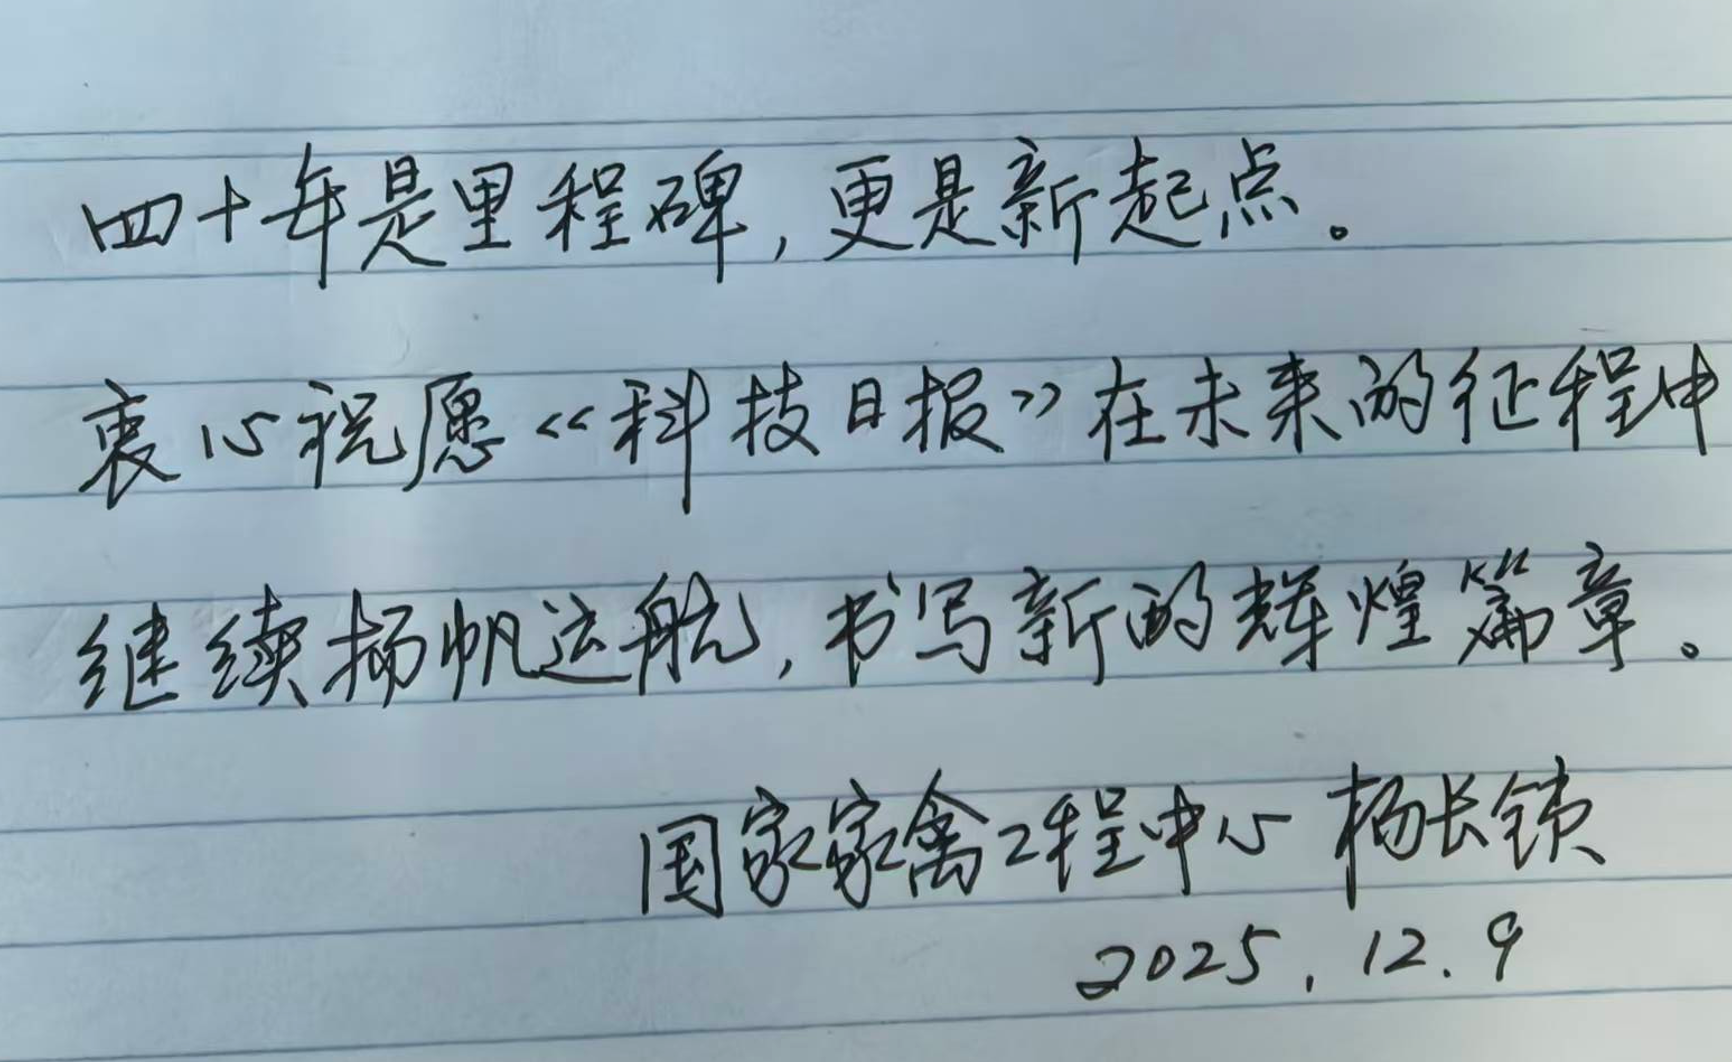 四十年是里程碑，更是新起点。
衷心祝愿《科技日报》在未来的征程中
继续扬帆远航，书写新的辉煌篇章。
国家家禽工程中心 杨长锁
2025.12.9